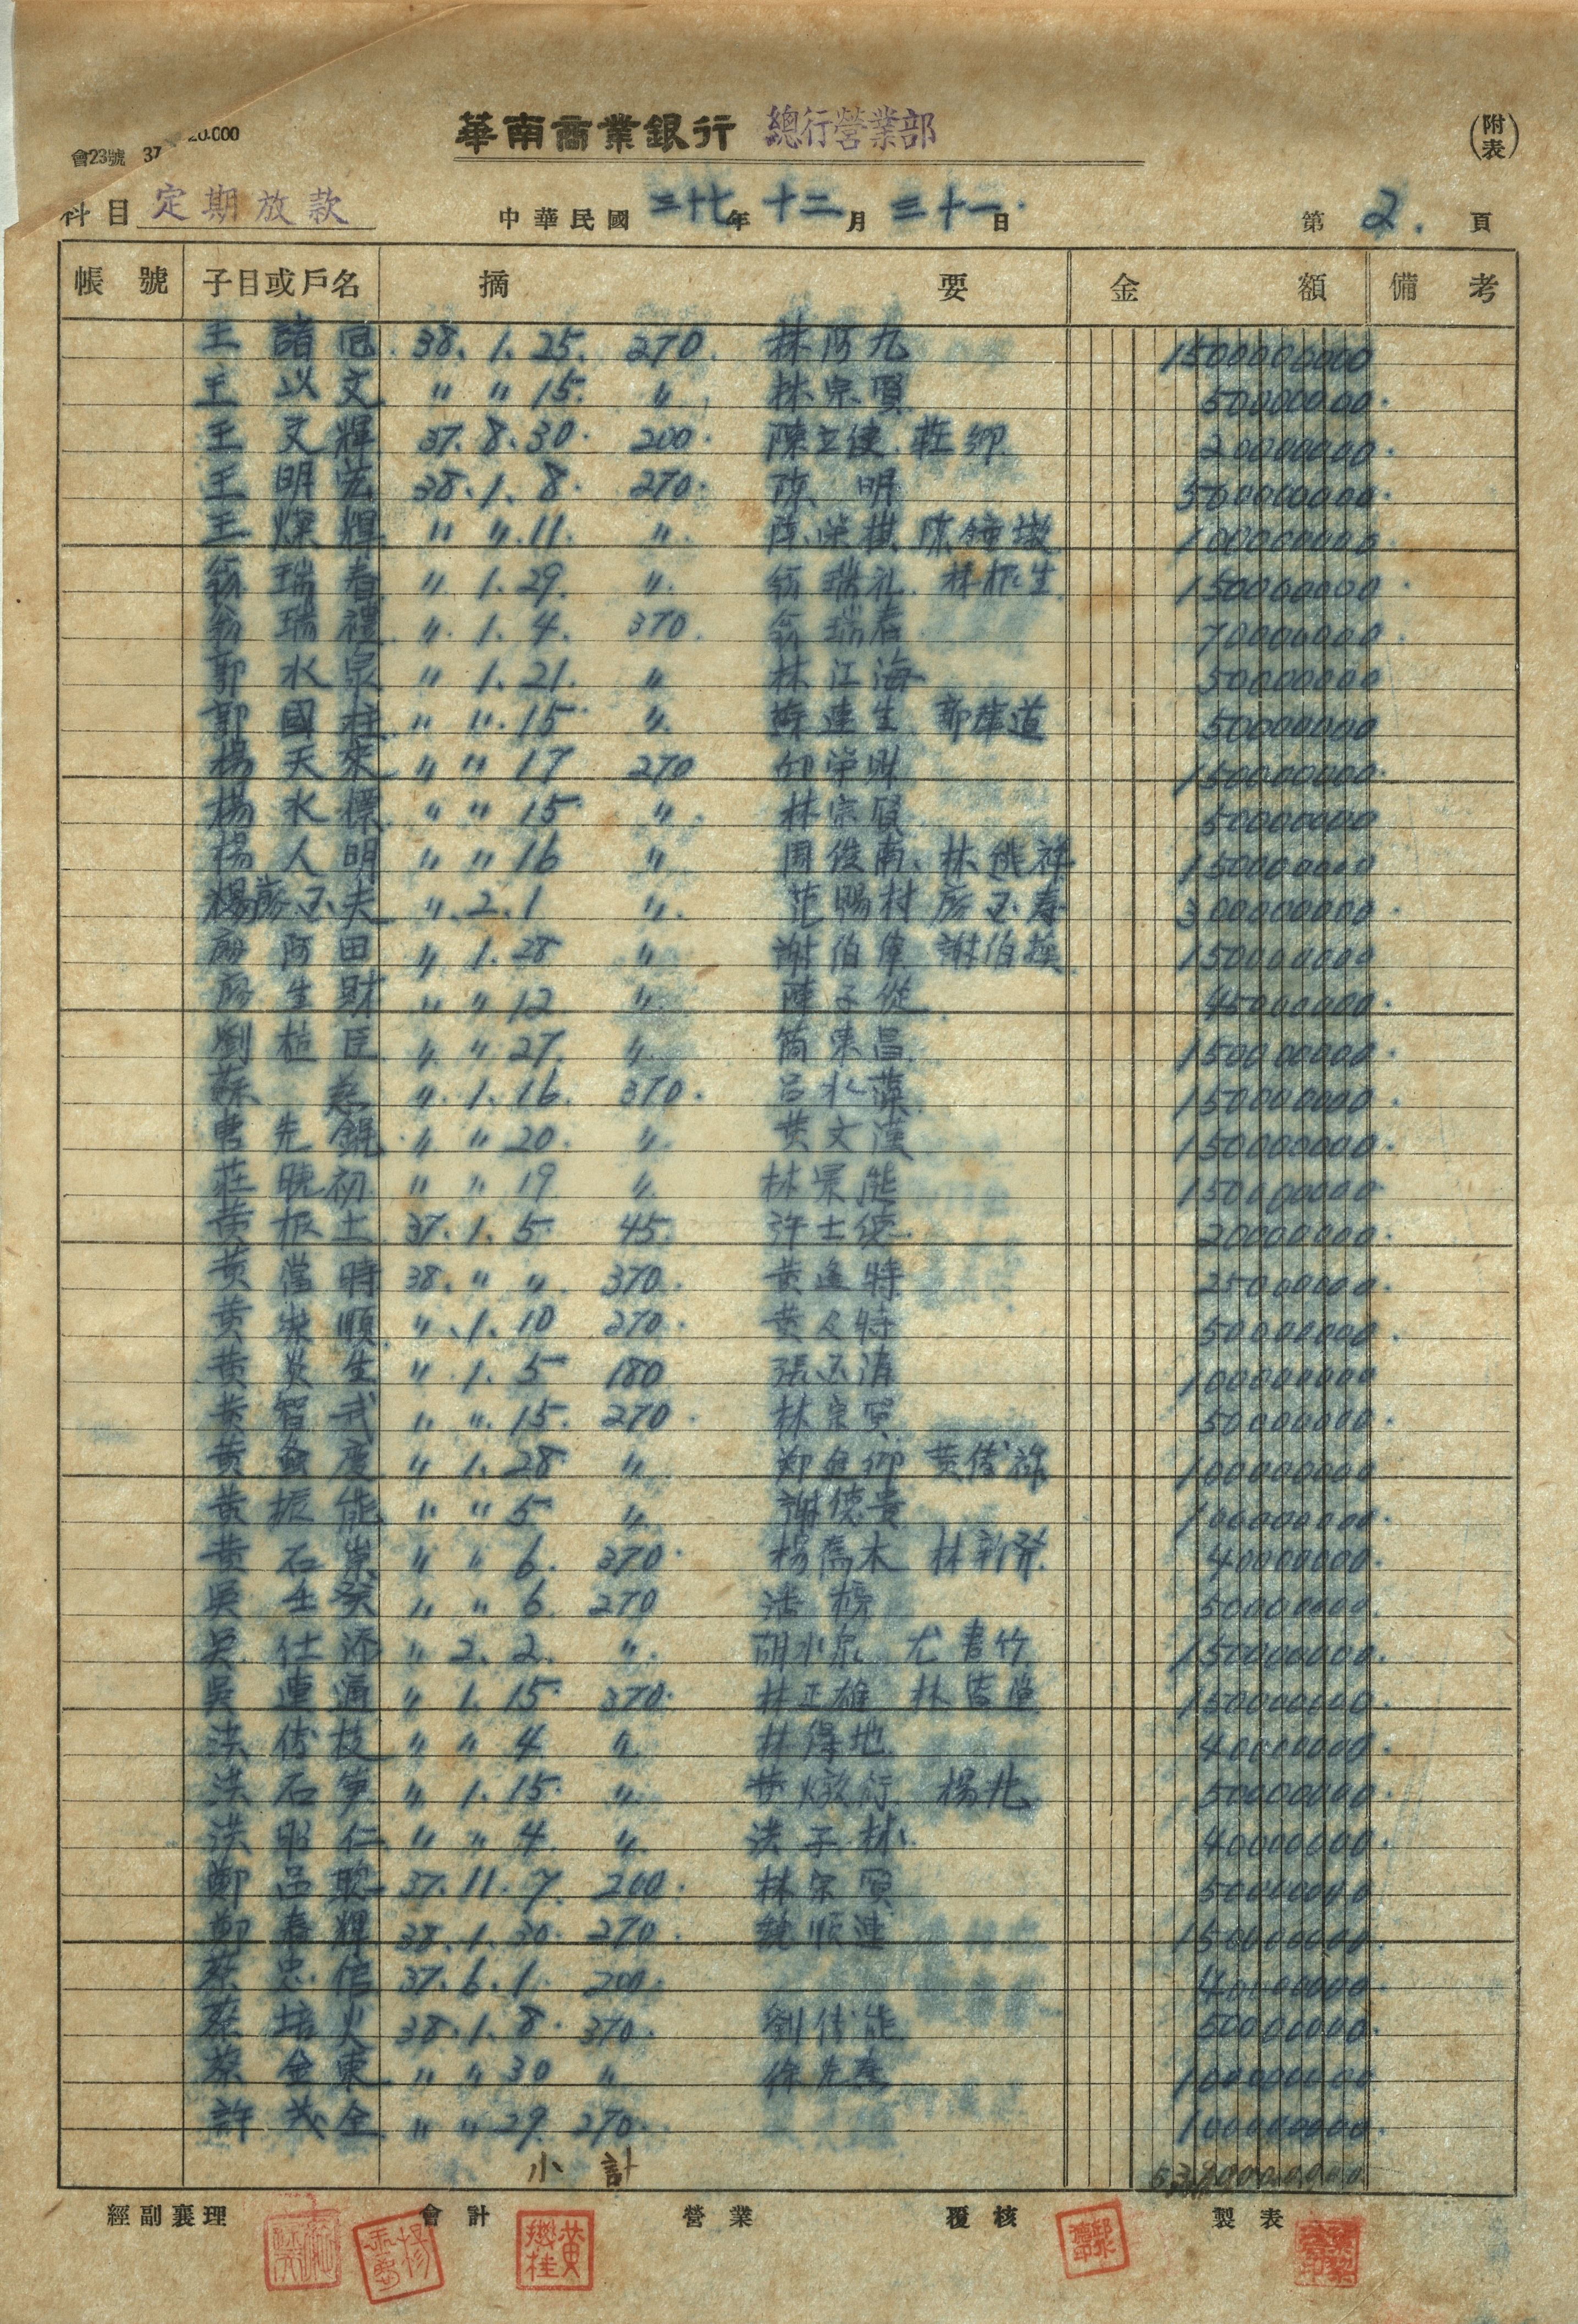 會23號 37 20.000
華南商業銀行 總行營業部
(附表)
科目 定期放款 中華民國 三十七年 十二月 三十一日 第 2. 頁
帳號 子目或戶名 摘要 金額 備考
王諸 38. 1. 25. 270. 林阿九 1500000000
王以文 〃 〃 15. 〃 林宗賢 50000000.
王文輝 37. 8. 30. 200. 陳立健. 莊卿 20000000.
王明宏 38. 1. 8. 270. 陳明 500000000.
王燦輝 〃 〃. 11. 〃. 陳榮棋 陳鐘墩 100000000.
翁瑞春 〃 1. 29. 〃. 翁瑞礼. 林根生 150000000.
翁瑞禮 〃. 1. 4. 370. 翁瑞春 70000000.
郭水泉 〃 1. 21. 〃 林江海 50000000
郭國柱 〃 〃. 15. 〃. 蘇連生 郭維道 50000000
楊天來 〃 〃 17 270 邱榮財 150000000.
楊水標 〃 〃 15 〃. 林宗賢 50000000
楊人明 〃 〃 16 〃 周俊南、林 祥 150000000
楊廖玉夫 〃. 2. 1 〃. 范賜村 廖玉春 300000000.
廖阿田 〃 1. 28 〃 謝伯 謝伯 150000000
廖生財 〃 〃 12 〃. 陳子從 45000000.
劉植臣 〃. 〃 27. 〃. 簡東昌 150000000.
蘇 〃. 1. 16. 370. 呂水 150000000.
曹先錕 〃 〃 20. 〃. 黃文漢 150000000.
莊曉初 〃 〃 19 〃. 林景能 150000000
黃根土 37. 1. 5. 45. 許士德 20000000.
黃當時 38. 〃 〃 370. 黃逢時 25000000.
黃崇順 〃. 1. 10 270. 黃 時 50000000.
黃炎生 〃. 1. 5 180 張玉清 100000000
黃智武 〃 〃. 15. 270. 林宗賢 50000000.
黃 度 〃 1. 28 〃. 鄭 卿 黃傳 100000000
黃振能 〃 〃 5 〃. 謝德貴 100000000.
黃石崇 〃 〃 6. 370. 楊喬木 林新發 40000000.
吳壬癸 〃 〃 6. 270 潘 50000000.
吳仕添 〃 2. 2. 〃. 胡水泉 尤書竹 150000000.
吳連通 〃 1. 15 370. 林正雄 林 堂 150000000
洪傳枝 〃 〃 4 〃. 林得地 40000000.
洪石笋 〃 1. 15. 〃. 黃燉衍 楊兆 50000000
洪昭仁 〃 〃 4. 〃. 洪子林 40000000.
鄭品聰 37. 11. 7. 200. 林宗賢 50000000
鄭春輝 38. 1. 30. 270. 魏順連 150000000.
蔡忠信 37. 6. 1. 200. 40000000
蔡培火 38. 1. 8. 370. 劉傳能 50000000.
蔡金東 〃 〃 30 〃 徐先 100000000
許茂全 〃 〃 29. 270. 100000000.
小計
經副襄理 會計 營業 覆核 製表
黃懋桂